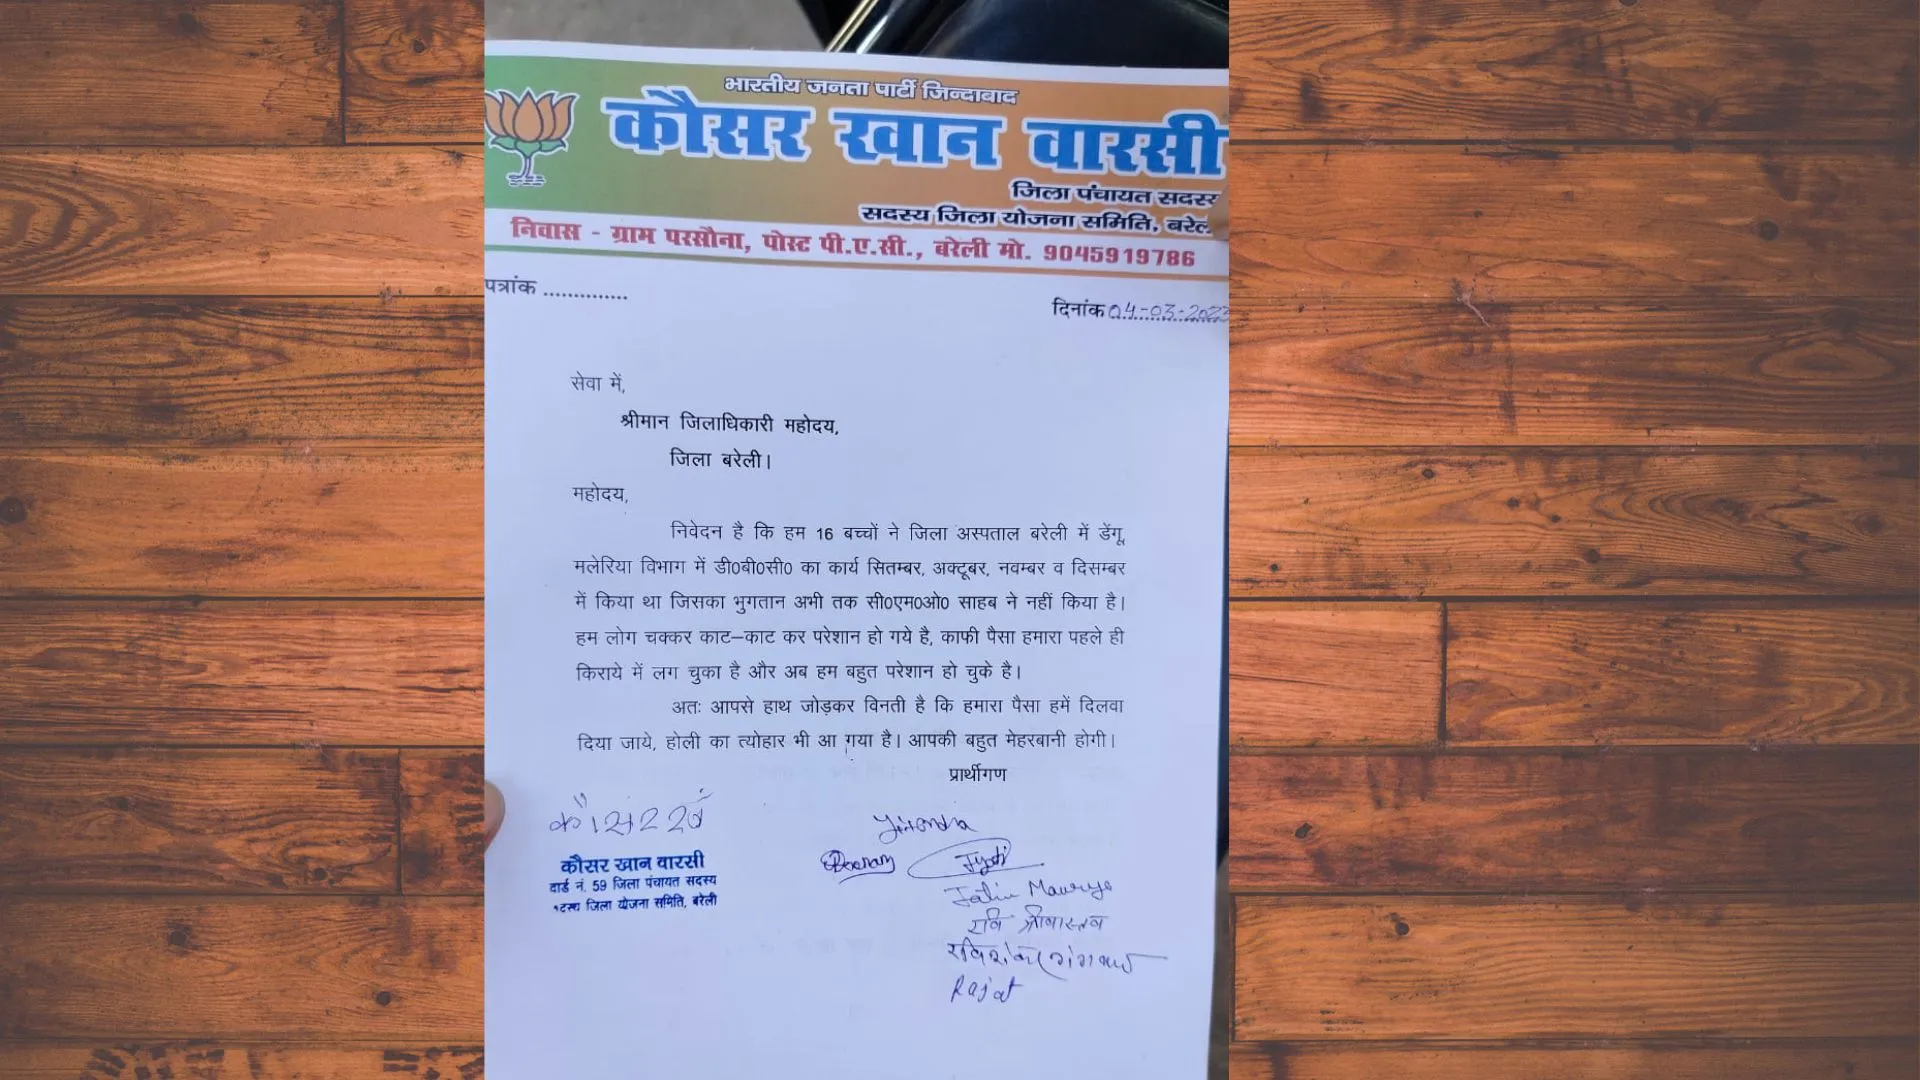 भारतीय जनता पार्टी जिन्दाबाद
कौसर खान वारसी
जिला पंचायत सदस्य
सदस्य जिला योजना समिति, बरेल
निवास - ग्राम परसौना, पोस्ट पी.ए.सी., बरेली मो. 9045919786
पत्रांक ..............
दिनांक 04-03-2023
सेवा में,
श्रीमान जिलाधिकारी महोदय,
जिला बरेली।
महोदय,
निवेदन है कि हम 16 बच्चों ने जिला अस्पताल बरेली में डेंगू,
मलेरिया विभाग में डी0बी0सी0 का कार्य सितम्बर, अक्टूबर, नवम्बर व दिसम्बर
में किया था जिसका भुगतान अभी तक सी0एम0ओ0 साहब ने नहीं किया है।
हम लोग चक्कर काट–काट कर परेशान हो गये है, काफी पैसा हमारा पहले ही
किराये में लग चुका है और अब हम बहुत परेशान हो चुके है।
अतः आपसे हाथ जोड़कर विनती है कि हमारा पैसा हमें दिलवा
दिया जाये, होली का त्योहार भी आ गया है। आपकी बहुत मेहरबानी होगी।
प्रार्थीगण
कौसर खॉ
कौसर खान वारसी
वार्ड नं. 59 जिला पंचायत सदस्य
सदस्य जिला योजना समिति, बरेली
Jyoti
Jatin Maurya
रवि श्रीवास्तव
रविशंकर गंगवार
Rajat